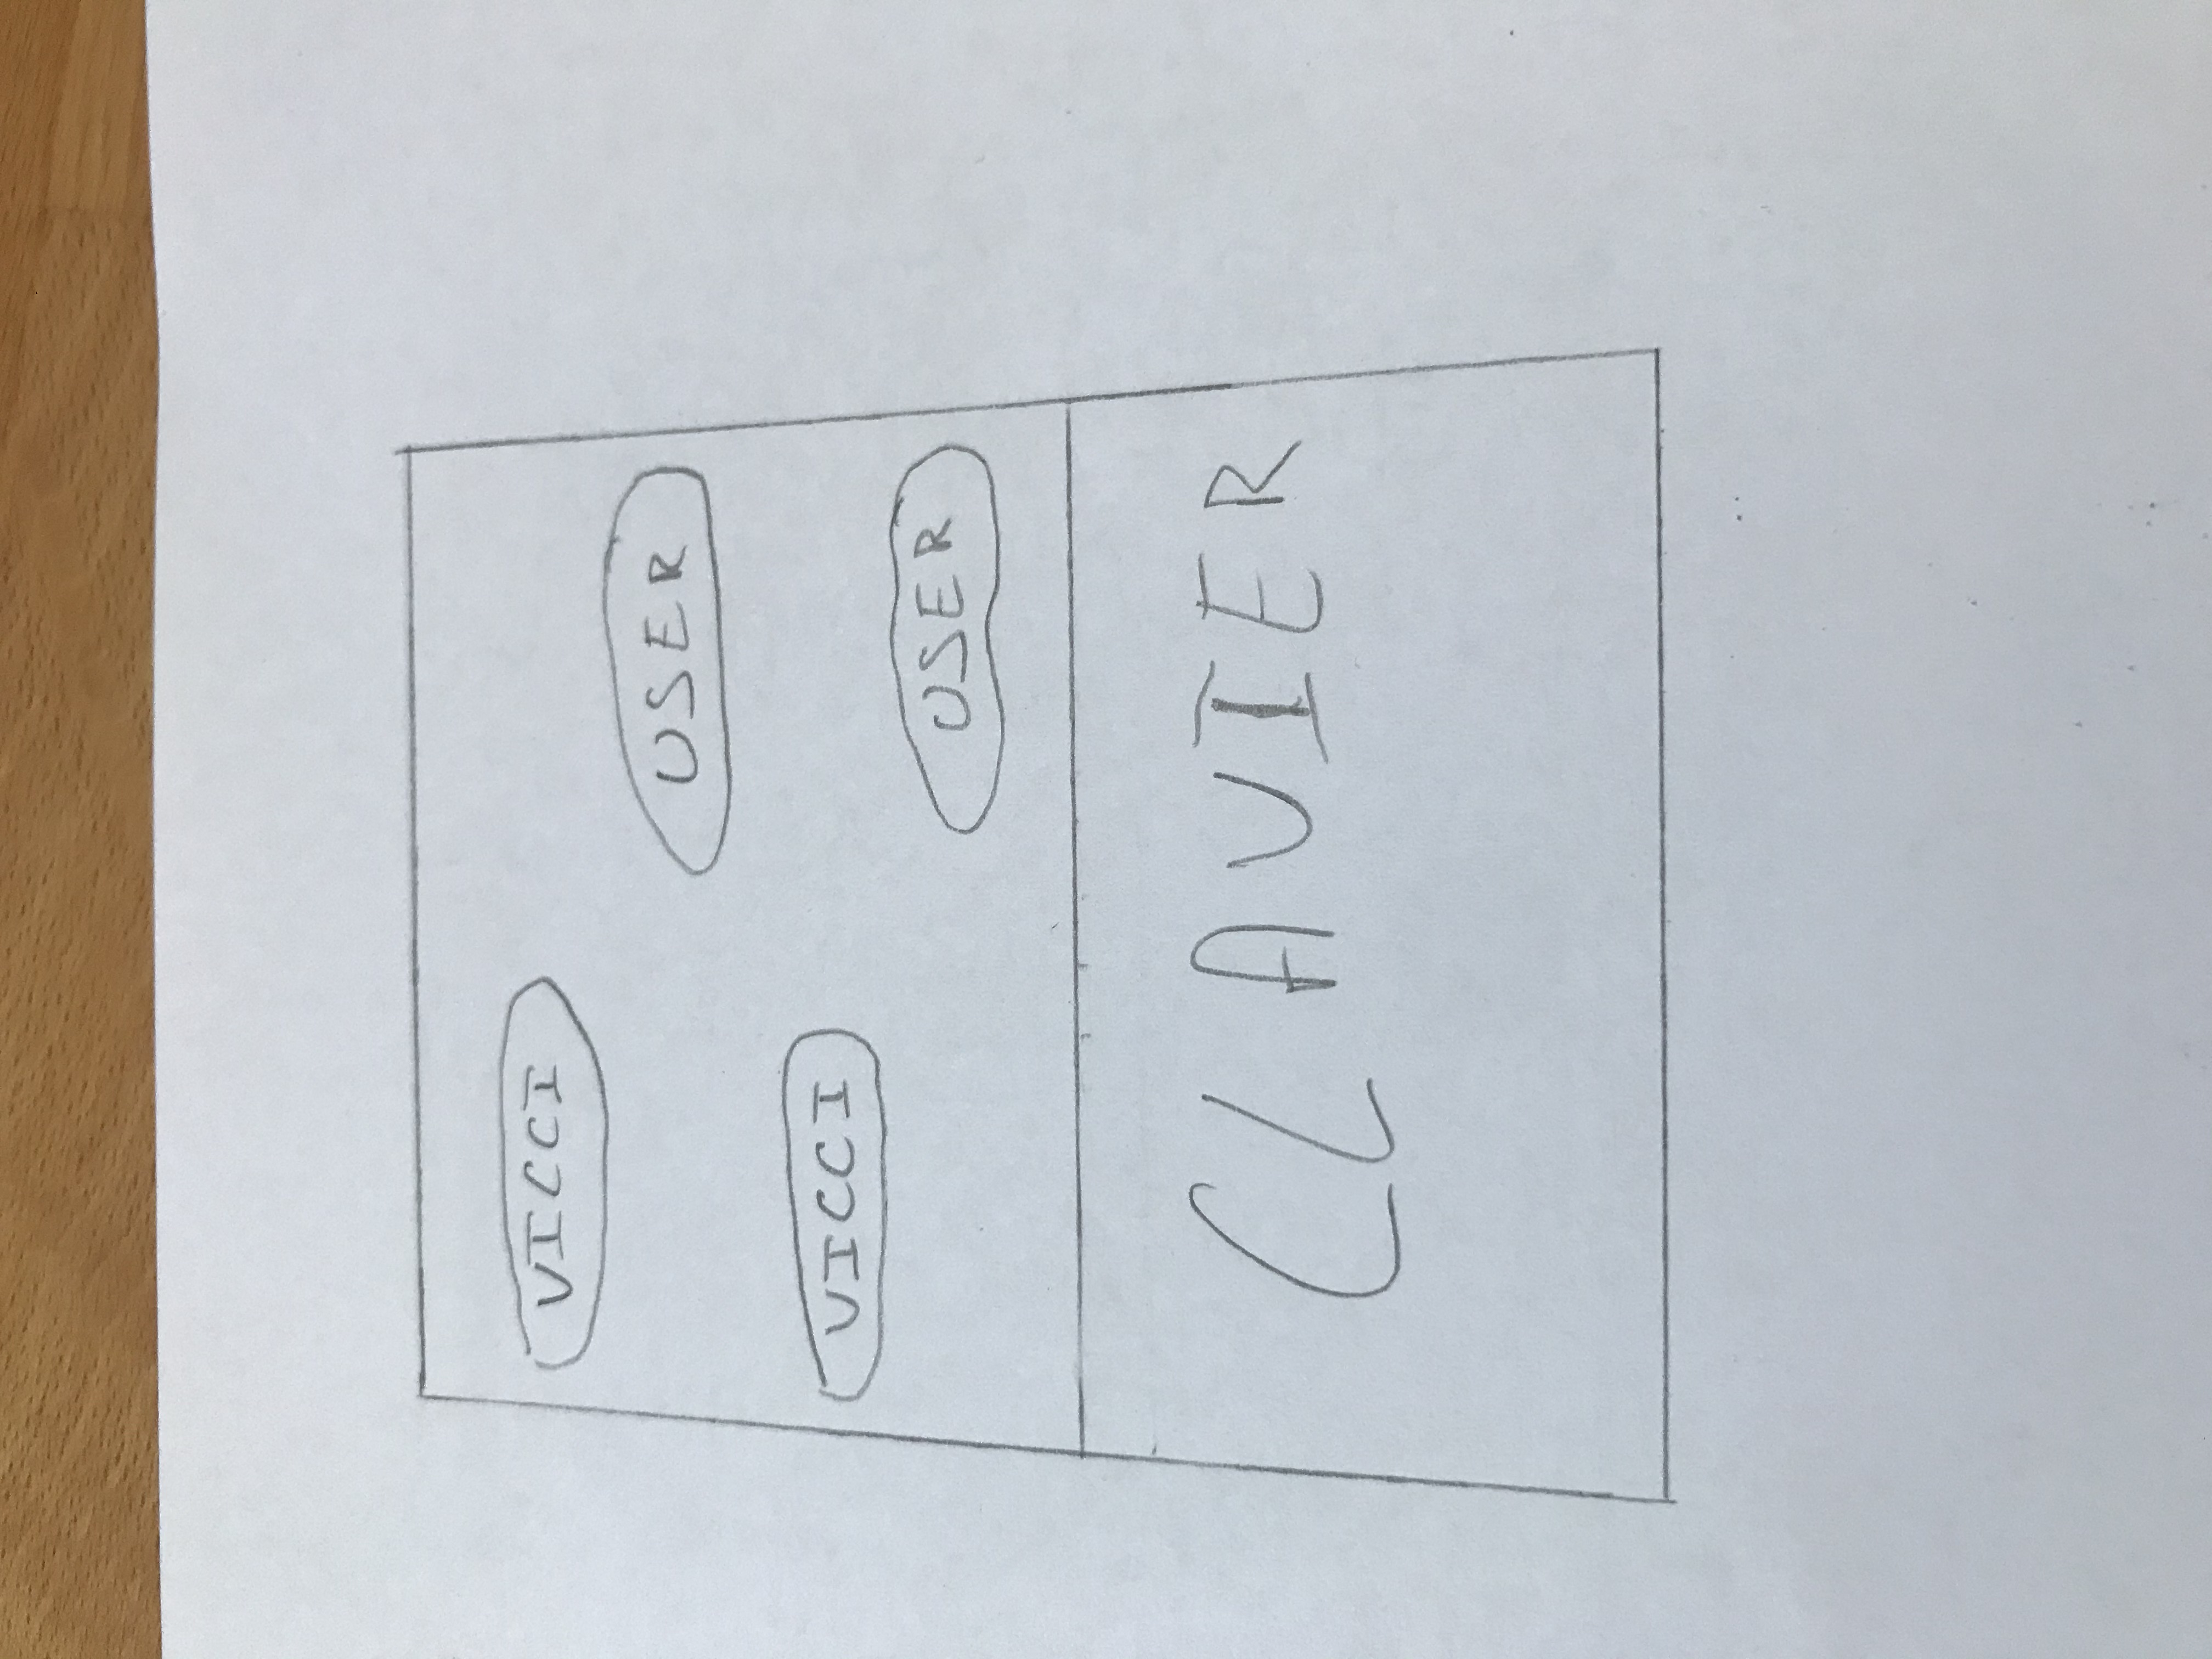 VICCI
USER
VICCI
USER
CLAVIER